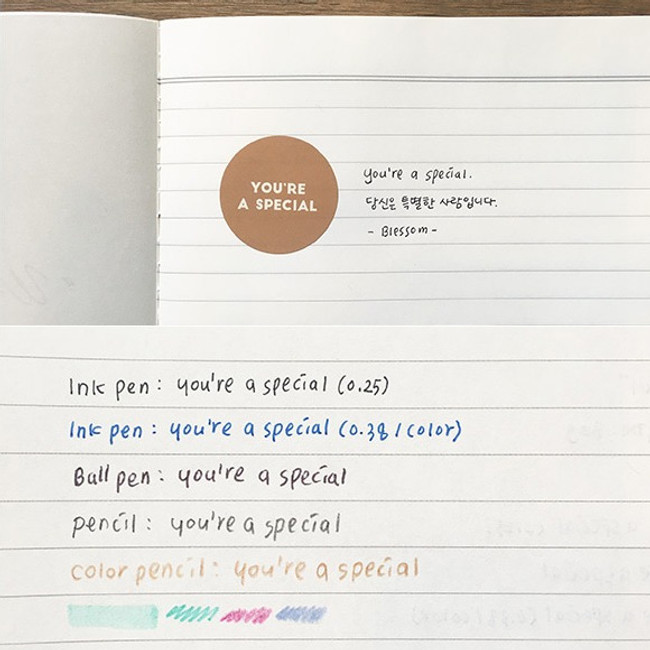 YOU'RE
A SPECIAL
you're a special.
당신은 특별한 사람입니다.
- Blessom -
Ink pen : you're a special (0.25)
Ink pen : you're a special (0.38 / color)
Ball pen : you're a special
pencil : you're a special
color pencil : you're a special